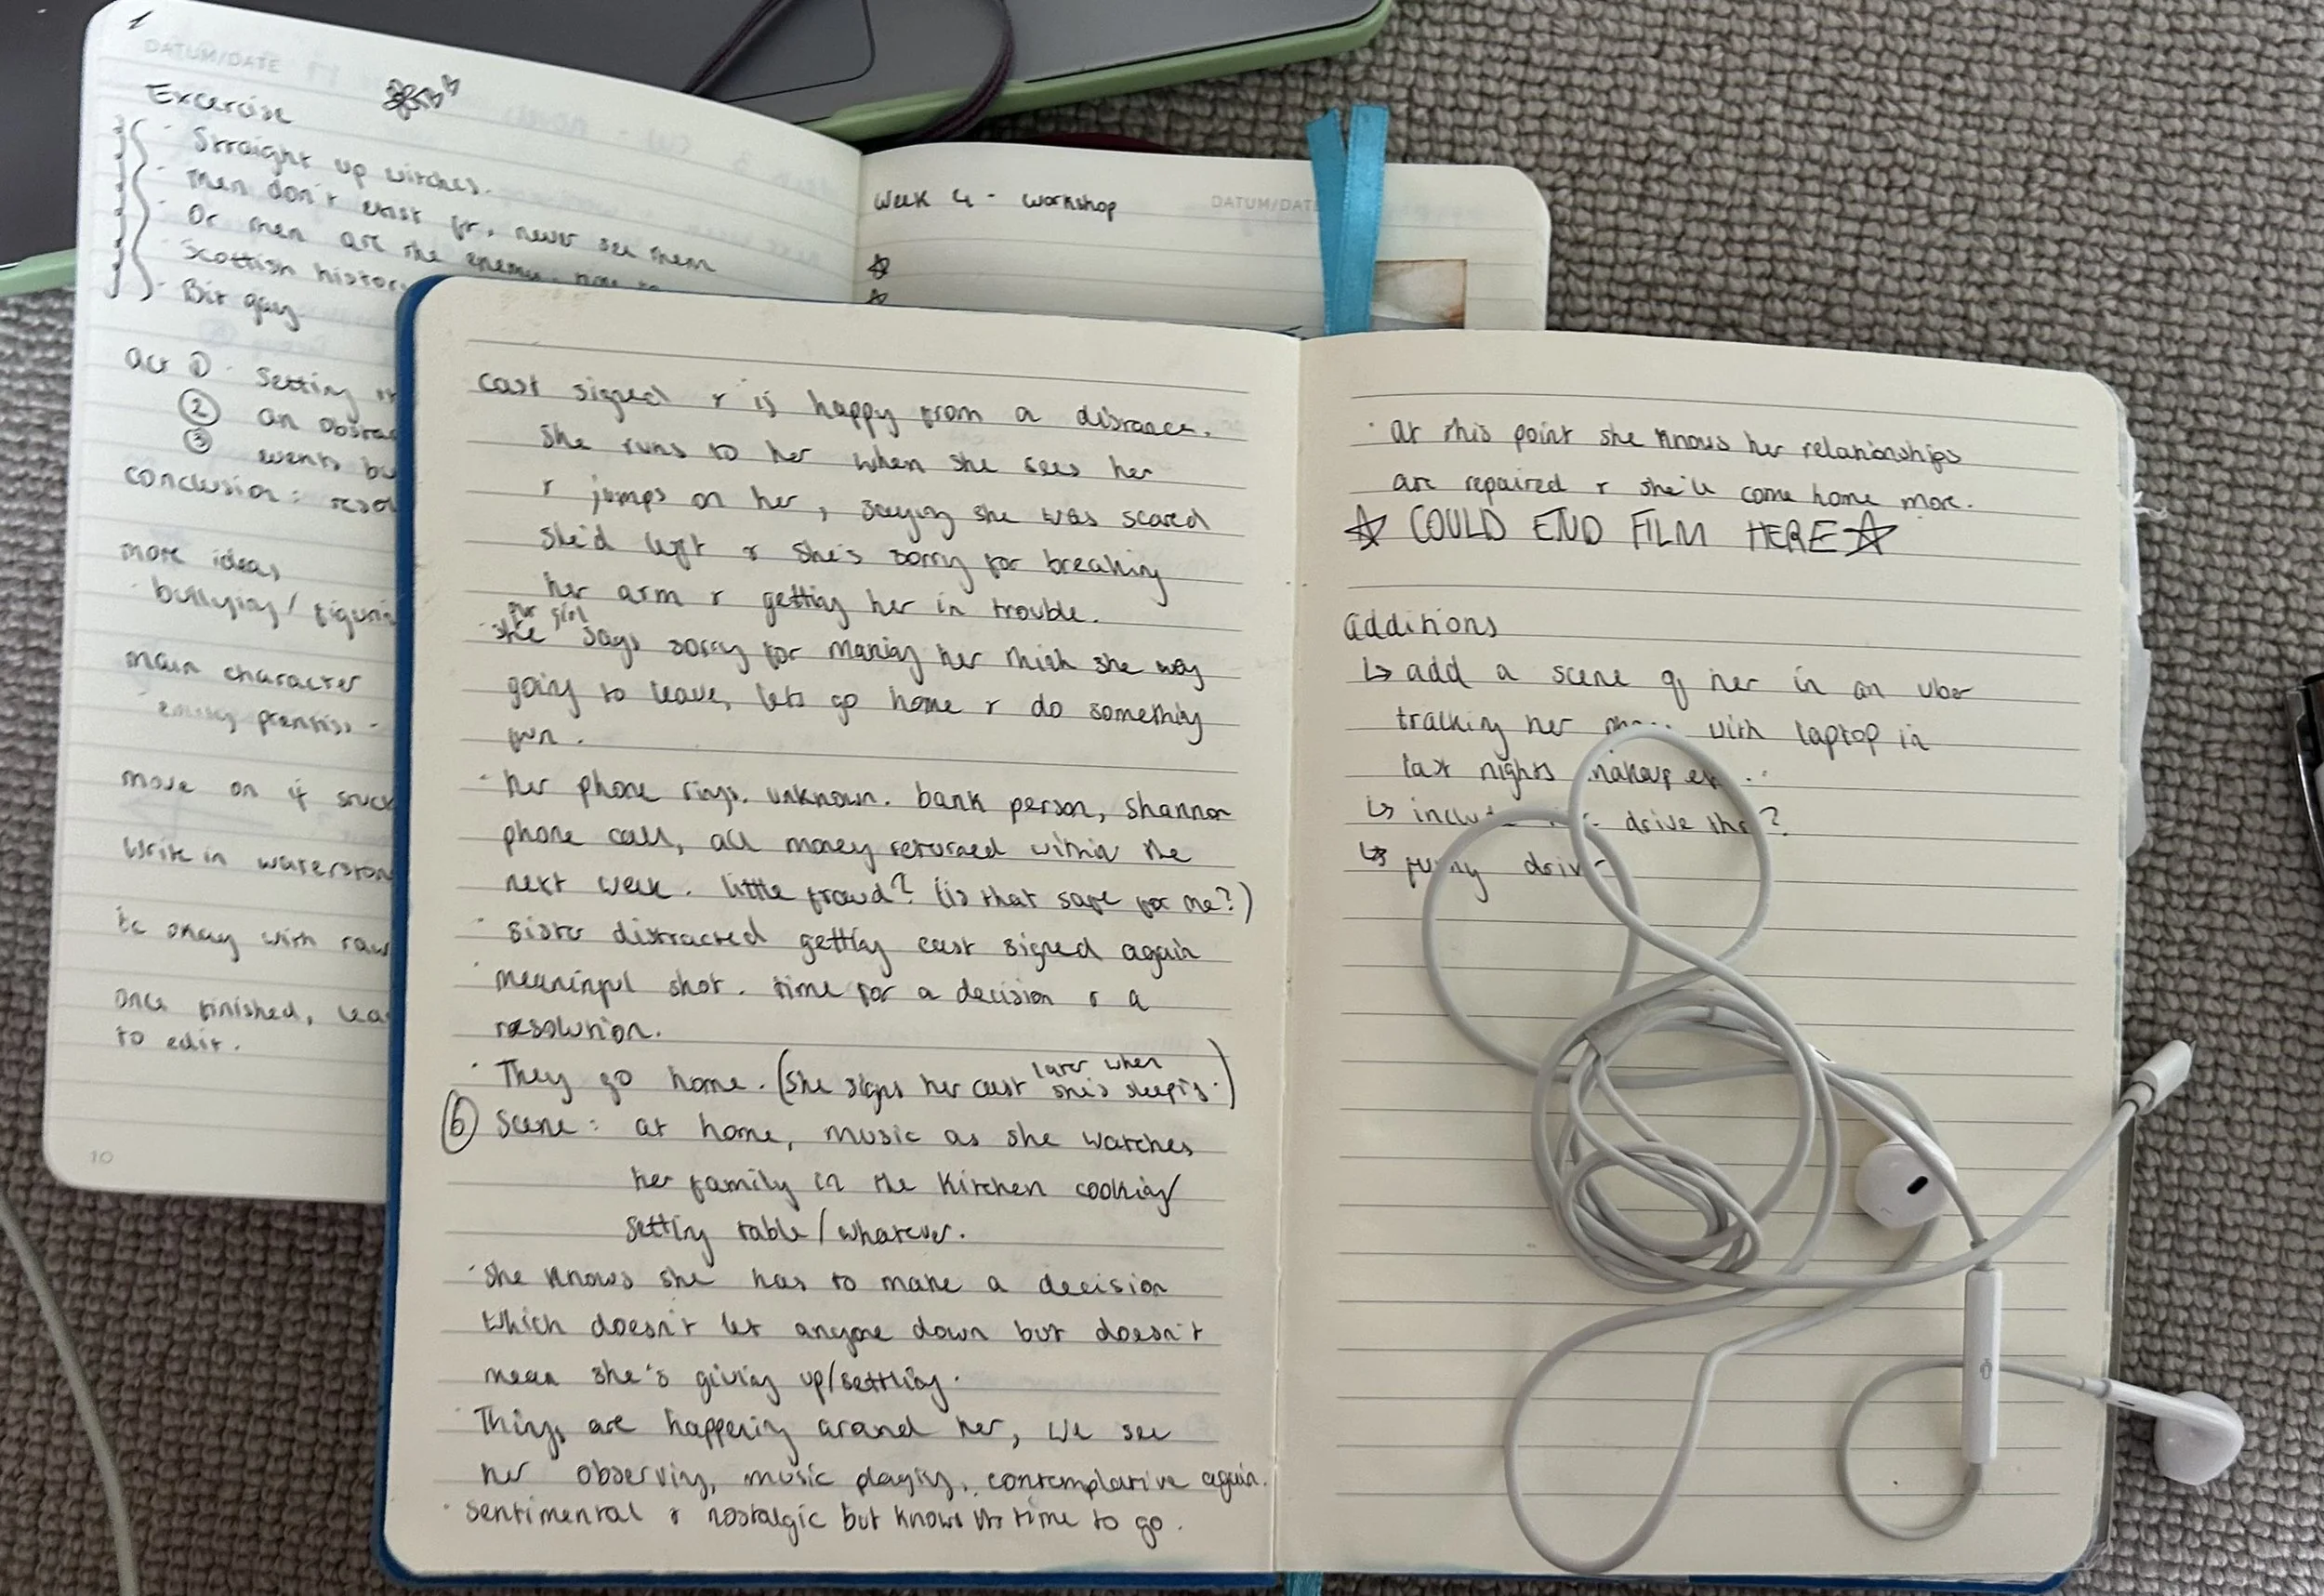 DATUM/DATE
Excercise
· Straight up witches.
· Men don't exist fr, never see them
· Or men are the enemy,
· Scottish history
· Bit gay
act ① · Setting
② an
③ events
conclusion:
more ideas
· bullying/
main character
move on if stuck
Write in
be okay with raw
once finished,
to edit.
10
Week 4 - workshop
DATUM/DATE
cast signed + is happy from a distance.
she runs to her when she sees her
+ jumps on her, saying she was scared
she'd left + she's sorry for breaking
her arm + getting her in trouble.
our girl
· she says sorry for making her think she was
going to leave, lets go home + do something
fun.
· her phone rings. unknown. bank person, shannon
phone call, all money returned within the
next week. little fraud? (is that safe for me?)
· sister distracted getting cast signed again
· meaninful shot. time for a decision + a
resolution.
later when
· They go home. (she signs her cast she's sleeping.)
⑥ Scene: at home, music as she watches
her family in the kitchen cooking/
setting table/whatever.
· she knows she has to make a decision
which doesn't let anyone down but doesn't
mean she's giving up/settling.
· Things are happening around her, we see
her observing, music playing, contemplative again.
· sentimental + nostalgic but knows its time to go.
· at this point she knows her relationships
are repaired + she'll come home more.
☆ COULD END FILM HERE ☆
additions
↳ add a scene of her in an uber
tracking her with laptop in
last nights makeup
↳ drive thr ?
↳ funny